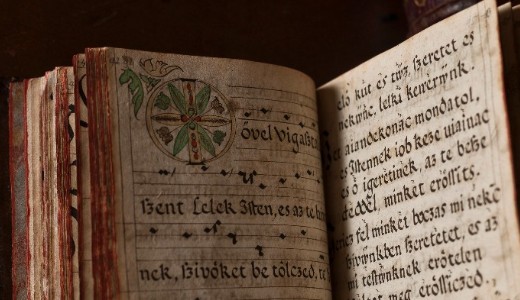 övel Vigaszt
szent Lelek Isten, es az te
nek, szivöket be tölczed, te
elö kut es tüz, szeretet es
lelki kenetünk.
aiandekonac mondatol,
Istennek iob keze uiainac
es ö igeretinek, az te besze
deddel, minket erössits.
fel minket boczas mi nekë
szivünkben szeretetet, es az
mi testünknek erötelen
meg erössiczed